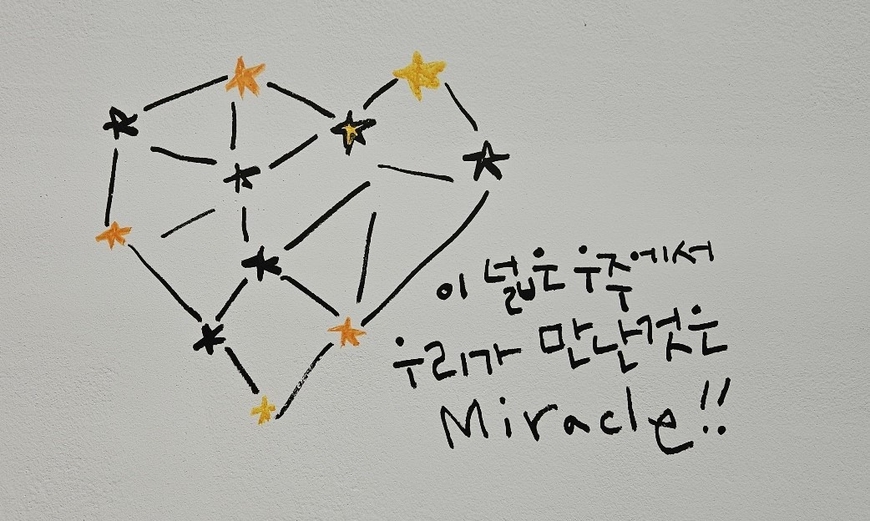 이 넓은 우주에서
우리가 만난것은
Miracle!!